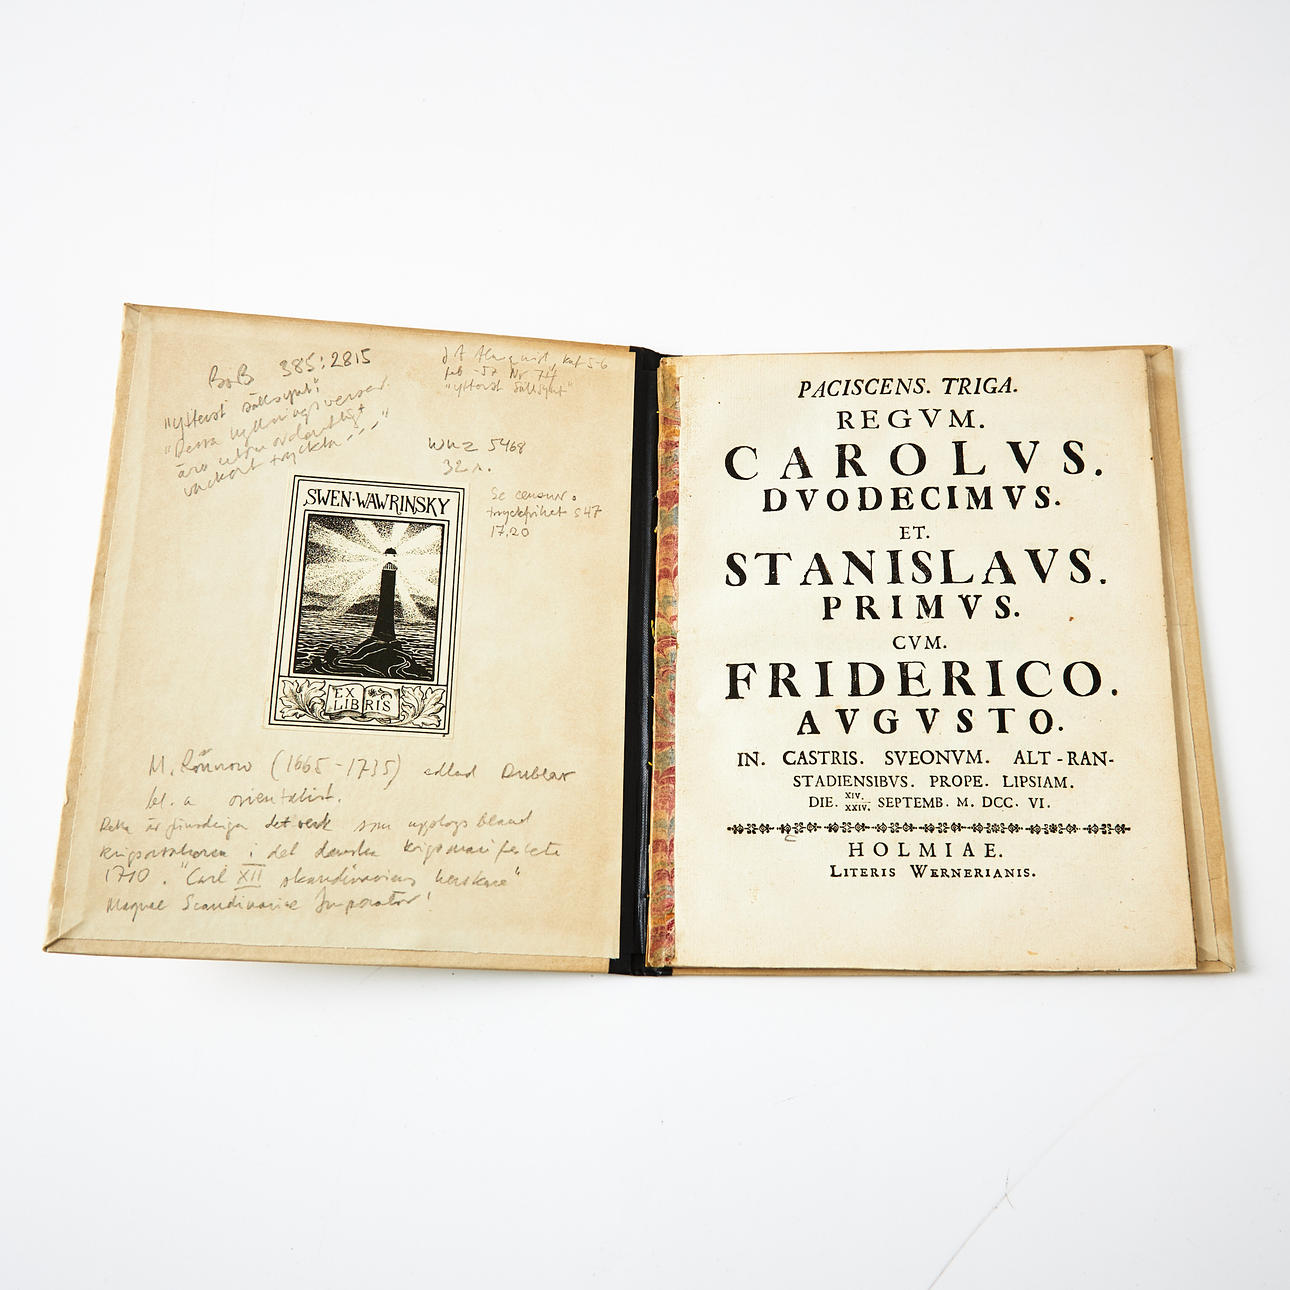 BoB 385:2815
"ytterst sällsynt"
"Dessa hyllningsverser
äro utomordentligt
vackert tryckta - - - "
J A Almquist, kat 5-6
feb -52 Nr
"ytterst sällsynt"
5468
32 s.
Se censur o
tryckfrihet s 47
17,20
SWEN·WAWRINSKY
EX LIBRIS
M. Rönnow (1665-1735) adlad Dubbar
bl. a orientalist.
Detta är det verk som bland
krigsorsakerna i det danska krigsmanifestet
1710. "Carl XII skandinaviens herskare"
Magnae Scandinaviae Imperator!
PACISCENS. TRIGA.
REGVM.
CAROLVS.
DVODECIMVS.
ET.
STANISLAVS.
PRIMVS.
CVM.
FRIDERICO.
AVGVSTO.
IN. CASTRIS. SVEONVM. ALT-RAN-
STADIENSIBVS. PROPE. LIPSIAM.
DIE. XIV. XXIV. SEPTEMB. M. DCC. VI.
HOLMIAE.
LITERIS WERNERIANIS.